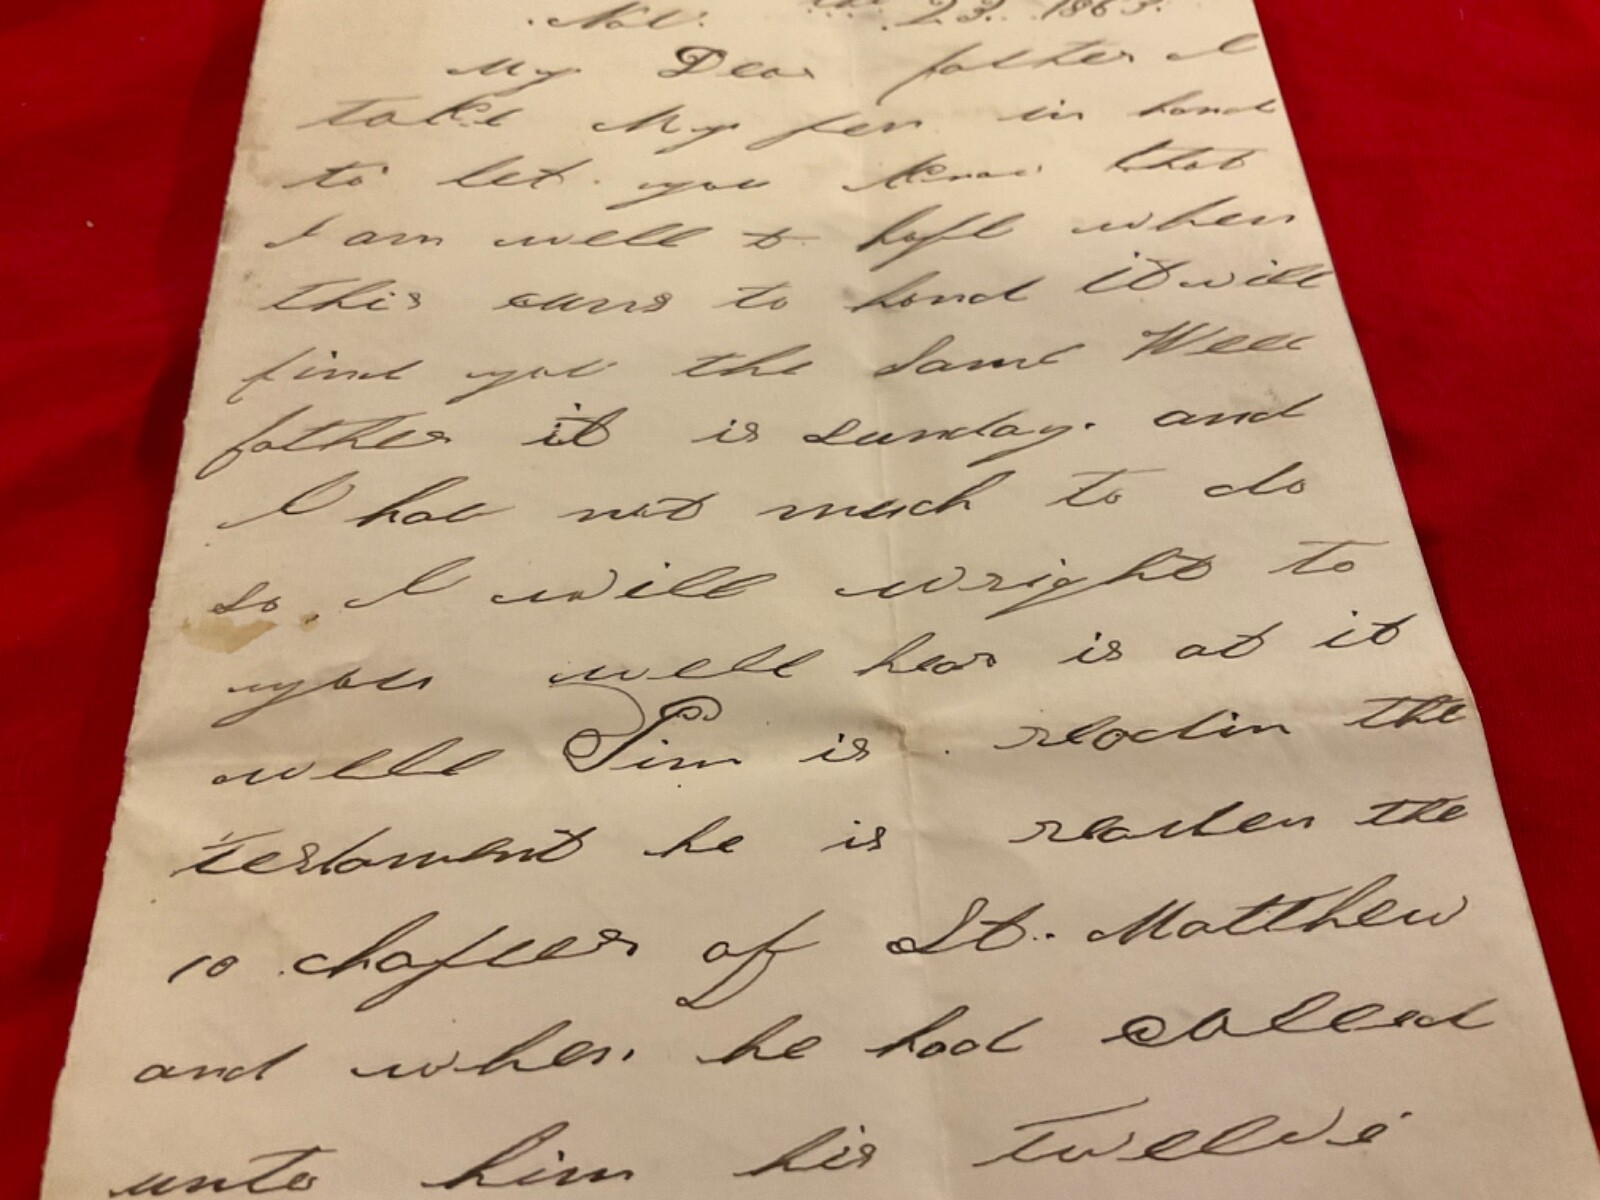 Nov. th 23. 1863.
My Dear father I
take My pen in hand
to let you know that
I am well & hope when
this cums to hand it will
find you the same Well
father it is sunday. and
I hav not much to do
so. I will wright to
you well hear is at it
well Tim is readin the
testament he is readen the
10 chapter of St. Matthew
and when he had called
unto him his twelve